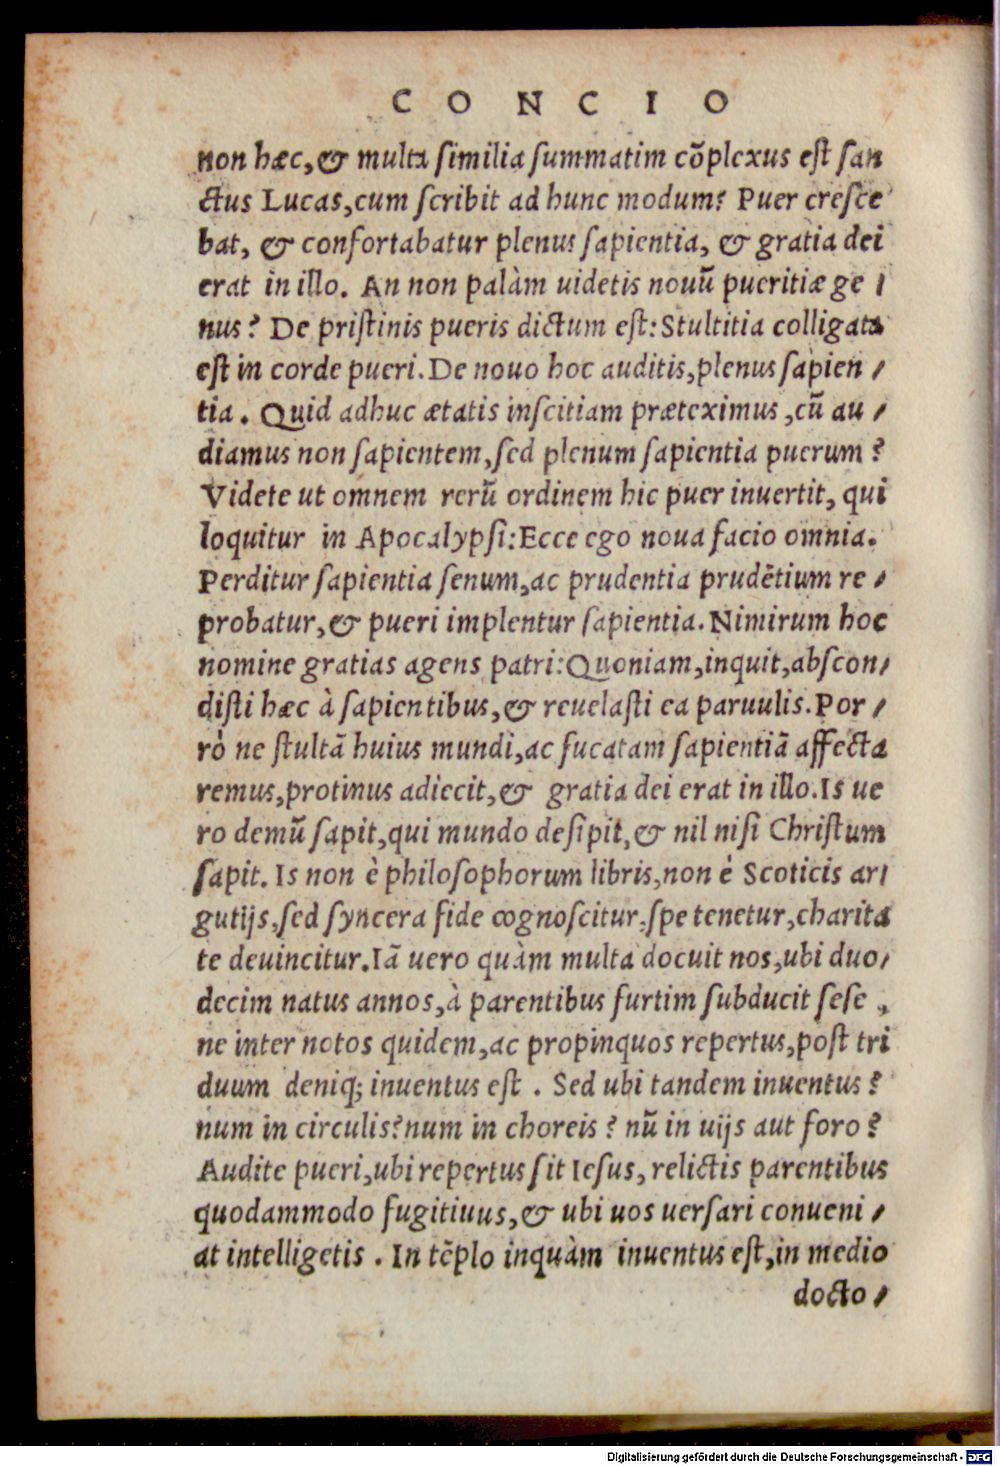 CONCIO
non hæc, & multa similia summatim cõplexus est san
ctus Lucas, cum scribit ad hunc modum? Puer cresce
bat, & confortabatur plenus sapientia, & gratia dei
erat in illo. An non palàm uidetis nouũ pueritiæ ge/
nus? De pristinis pueris dictum est: Stultitia colligata
est in corde pueri. De nouo hoc auditis, plenus sapien/
tia. Quid adhuc ætatis inscitiam præteximus, cũ au/
diamus non sapientem, sed plenum sapientia puerum?
Videte ut omnem rerũ ordinem hic puer inuertit, qui
loquitur in Apocalypsi: Ecce ego noua facio omnia.
Perditur sapientia senum, ac prudentia prudẽtium re/
probatur, & pueri implentur sapientia. Nimirum hoc
nomine gratias agens patri: Quoniam, inquit, abscon/
disti hæc à sapientibus, & reuelasti ea paruulis. Por/
rò ne stultã huius mundi, ac fucatam sapientiã affecta
remus, protinus adiecit, & gratia dei erat in illo. Is ue
ro demũ sapit, qui mundo desipit, & nil nisi Christum
sapit. Is non è philosophorum libris, non è Scoticis ar/
gutijs, sed syncera fide cognoscitur, spe tenetur, charita
te deuincitur. Iã uero quàm multa docuit nos, ubi duo/
decim natus annos, à parentibus furtim subducit sese,
ne inter notos quidem, ac propinquos repertus, post tri
duum deniq; inuentus est. Sed ubi tandem inuentus?
num in circulis? num in choreis? nũ in uijs aut foro?
Audite pueri, ubi repertus sit Iesus, relictis parentibus
quodammodo fugitiuus, & ubi uos uersari conueni/
at intelligetis. In tẽplo inquàm inuentus est, in medio
docto/
Digitalisierung gefördert durch die Deutsche Forschungsgemeinschaft - DFG